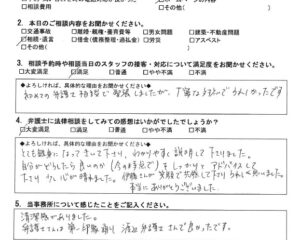 □相談費用 □その他( )
2. 本日のご相談内容をお聞かせください。
□交通事故 □離婚・親権・養育費等 □男女問題 □建築・不動産問題
□相続・遺言 □借金(債務整理・過払金) □労災 □アスベスト
□その他( )
3. 相談予約時や相談当日のスタッフの接客・対応について満足度をお聞かせください。
□大変満足 □満足 □普通 □やや不満 □不満
◆よろしければ、具体的な理由をお聞かせください◆
初めての弁護士相談で緊張しましたが、丁寧な対応でうれしかったです
4. 弁護士に法律相談をしてみての感想はいかがでしたでしょうか?
□大変満足 □満足 □普通 □やや不満 □不満
◆よろしければ、具体的な理由をお聞かせください◆
とても親身になってきいて下さり、わかりやすく説明して下さりました。
自分がどうしたら良いのか(今の時点で)をしっかりとアドバイスして
下さり、心が晴れました。 笑顔で 下さりうれしく思いました。
本当にありがとうございました。
5. 当事務所について感じたことをご記入ください。
清潔感がありました。
弁護士さんは第一印象通り 弁護士さんで良かったです。